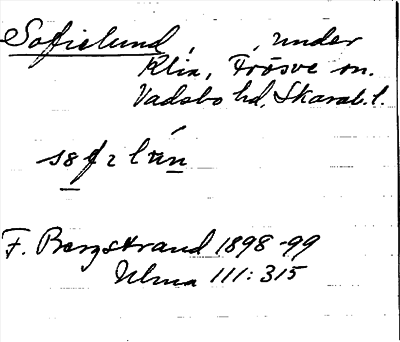 Sofielund, , under
Klin, Frösve sn.
Vadsbo hd, Skarab. l.
F. Bergstrand 1898-99
Ulma 111:315